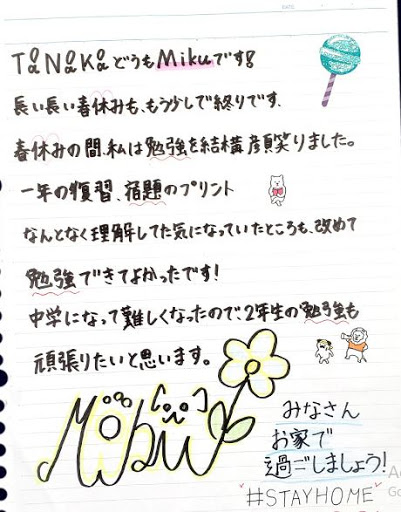 TaNaKa どうも Miku です!
長い長い春休みも、もう少しで終りです.
春休みの間、私は勉強を結構頑笑りました。
一年の復習、宿題のプリント
なんとなく理解してた気になっていたところも、改めて
勉強できてよかったです!
中学になって難しくなったので、2年生の勉強も
頑張りたいと思います。
Miku
みなさん
お家で
過ごしましょう!
#STAYHOME